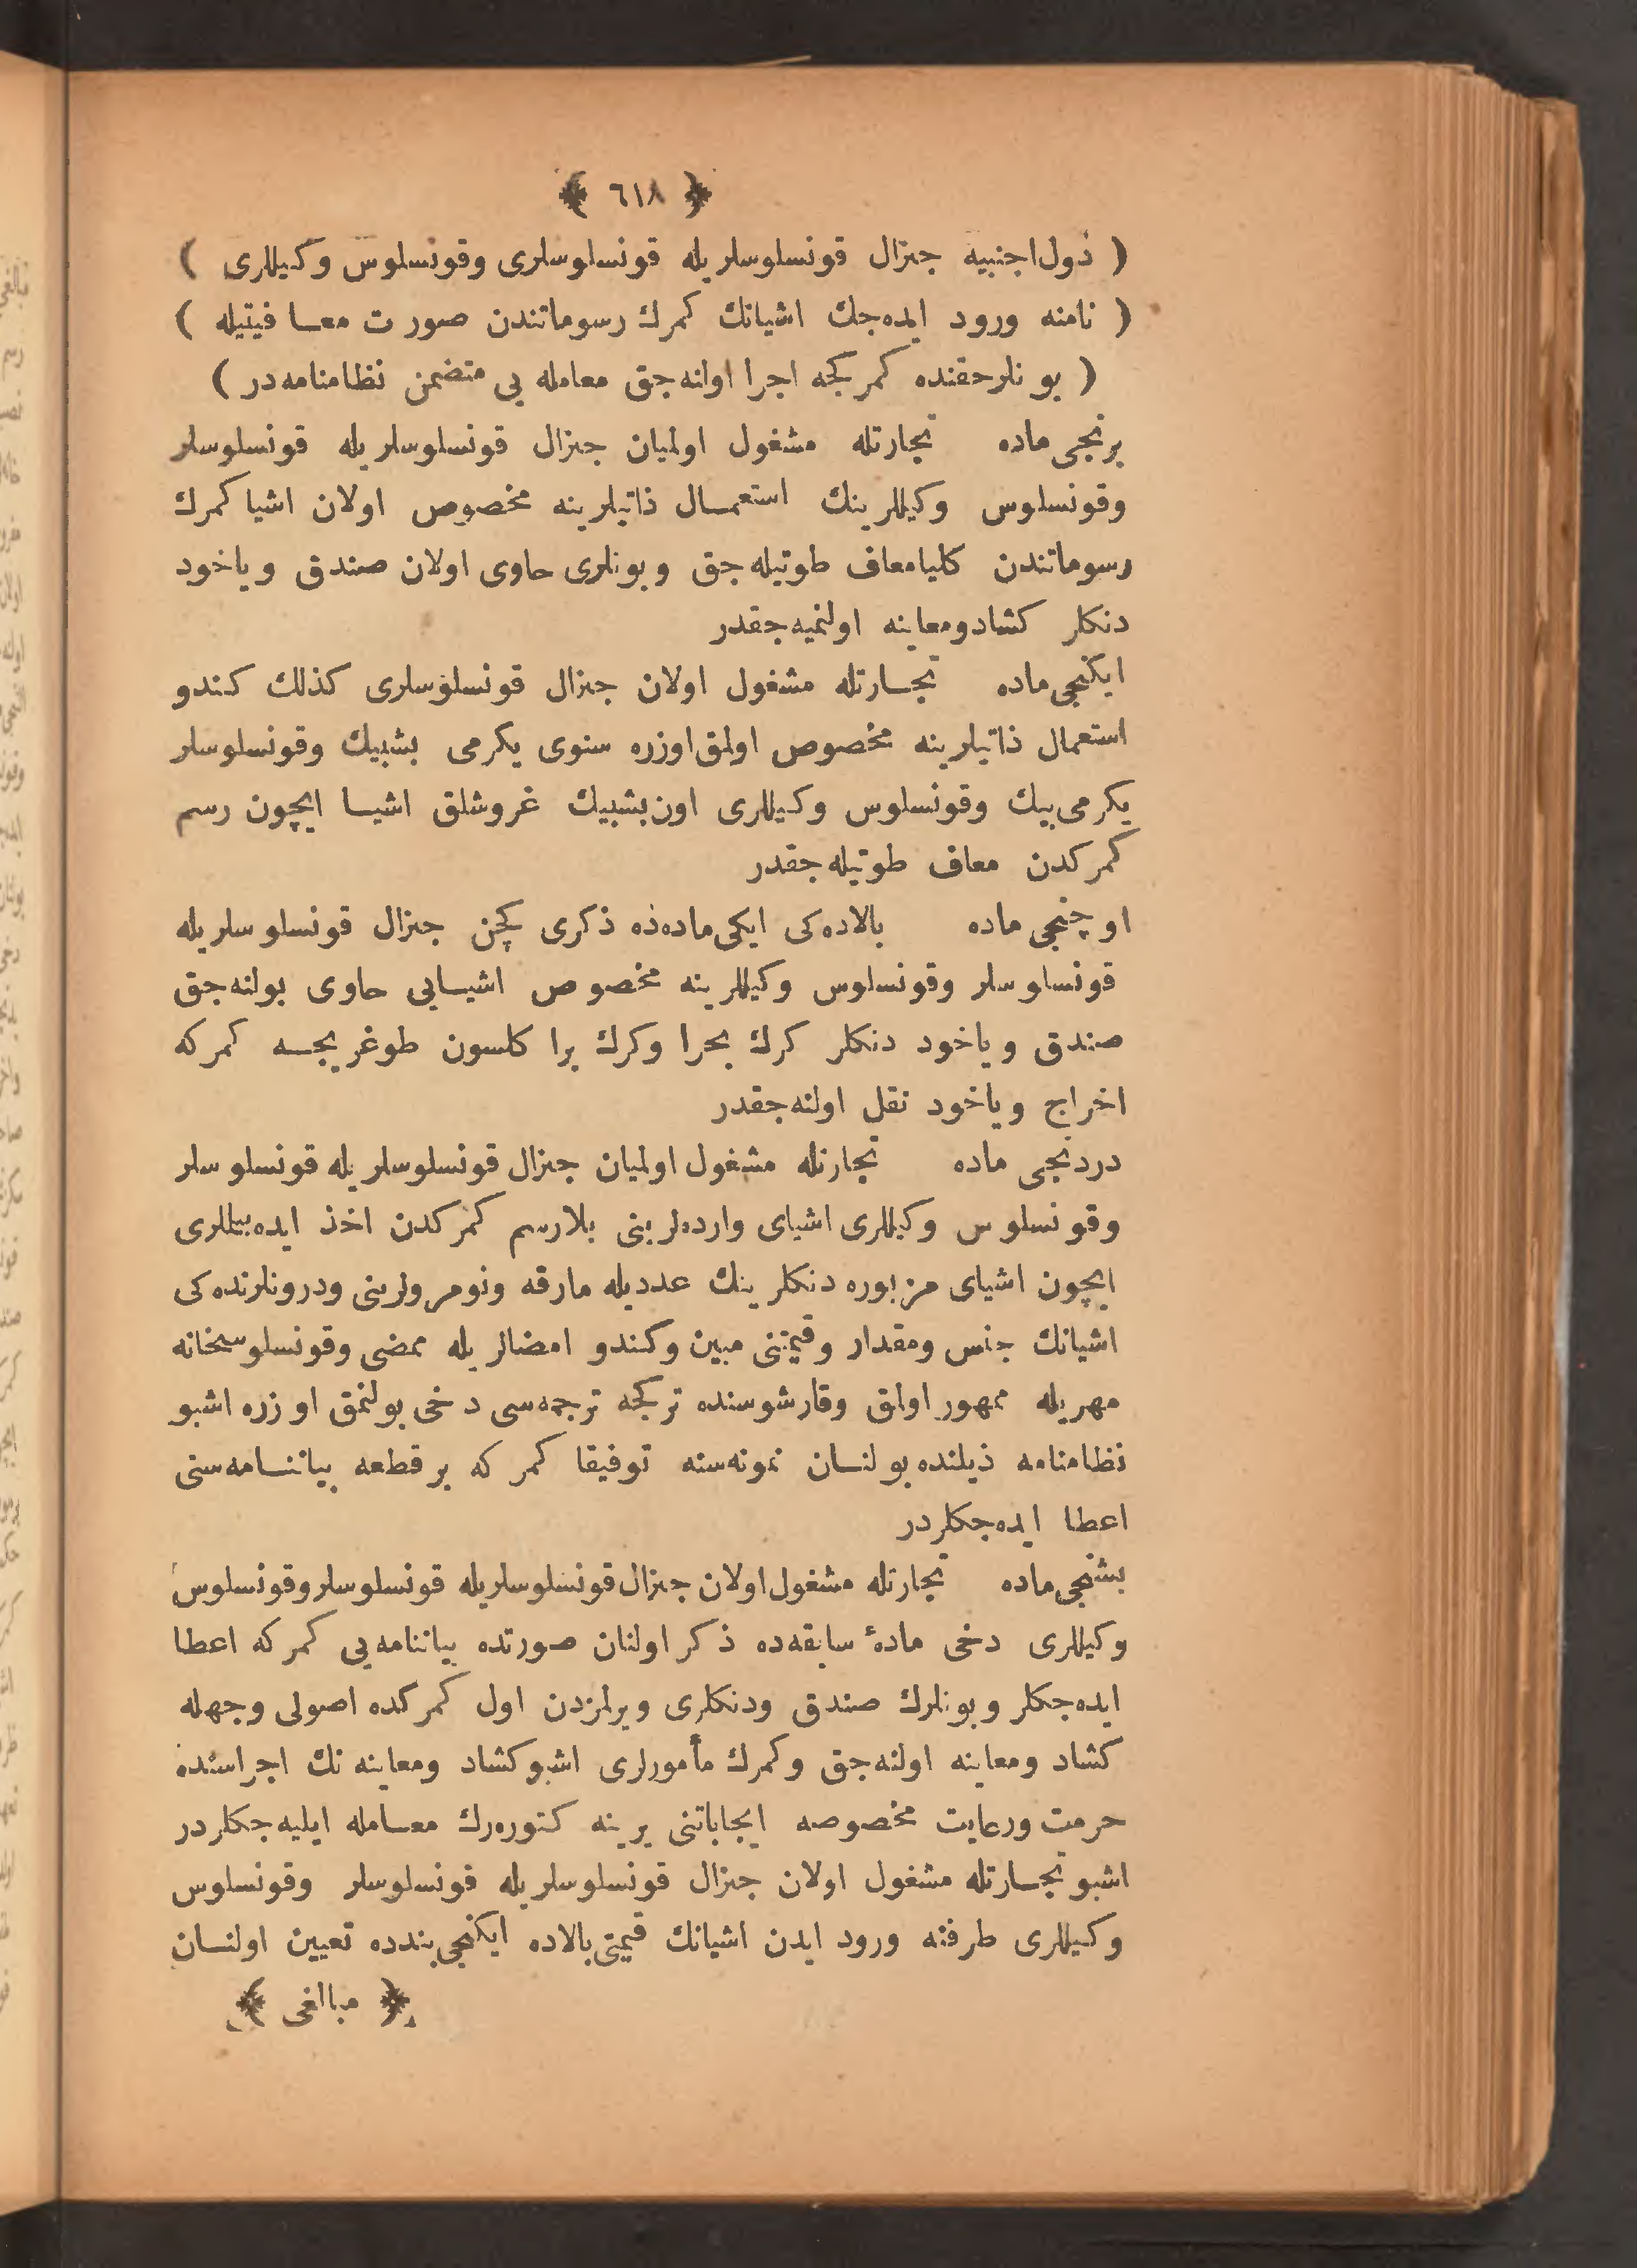 ﴿ ٦١٨ ﴾
( دول اجنبیه جنرال قونسلوسلریله قونسلوسلری وقونسلوس وکیللری )
( نامنه ورود ایده‌جك اشیانك کمرك رسوماتندن صورت معافیتیله )
( بونلرحقنده کمرکجه اجرا اولنه‌جق معامله یی متضمن نظامنامه‌در )
برنجی ماده تجارتله مشغول اولمیان جنرال قونسلوسلریله قونسلوسلر
وقونسلوس وکیللرینك استعمال ذاتیلرینه مخصوص اولان اشیا کمرك
رسوماتندن کلیامعاف طوتیله‌جق وبونلری حاوی اولان صندق ویاخود
دنکلر کشادومعاینه اولنمیه‌جقدر
ایکنجی ماده تجارتله مشغول اولان جنرال قونسلوسلری کذلك کندو
استعمال ذاتیلرینه مخصوص اولمق اوزره سنوی یکرمی بشبیك وقونسلوسلر
یکرمی بیك وقونسلوس وکیللری اون بشبیك غروشلق اشیا ایچون رسم
کمرکدن معاف طوتیله‌جقدر
اوچنجی ماده بالاده‌کی ایکی ماده‌ده ذکری کچن جنرال قونسلوسلریله
قونسلوسلر وقونسلوس وکیللرینه مخصوص اشیایی حاوی بولنه‌جق
صندق ویاخود دنکلر کرك بحرا وکرك برا کلسون طوغریجه کمرکه
اخراج ویاخود نقل اولنه‌جقدر
دردنجی ماده تجارتله مشغول اولمیان جنرال قونسلوسلریله قونسلوسلر
وقونسلوس وکیللری اشیای وارده‌لرینی بلارسم کمرکدن اخذ ایده‌بیللری
ایچون اشیای مزبوره دنکلرینك عددیله مارقه ونومرولرینی ودرونلرنده‌کی
اشیانك جنس ومقدار وقیمتنی مبین وکندو امضالریله ممضی وقونسلوسخانه
مهریله ممهور اولمق وقارشوسنده ترکجه ترجمه‌سی دخی بولنمق اوزره اشبو
نظامنامه ذیلنده بولنان نمونه‌سنه توفیقا کمرکه برقطعه بیاننامه‌سنی
اعطا ایده‌جکلردر
بشنجی ماده تجارتله مشغول اولان جنرال قونسلوسلریله قونسلوسلر وقونسلوس
وکیللری دخی مادهٔ سابقه‌ده ذکر اولنان صورتده بیاننامه‌یی کمرکه اعطا
ایده‌جکلر وبونلرك صندق ودنکلری ویرلمزدن اول کمرکده اصولی وجهله
کشاد ومعاینه اولنه‌جق وکمرك مأمورلری اشبو کشاد ومعاینه نك اجراسنده
حرمت ورعایت مخصوصه ایجاباتنی یرینه کتوره‌رك معامله ایلیه‌جکلردر
اشبو تجارتله مشغول اولان جنرال قونسلوسلریله قونسلوسلر وقونسلوس
وکیللری طرفنه ورود ایدن اشیانك قیمتی بالاده ایکنجی بندده تعیین اولنان
﴿ مبالغی ﴾